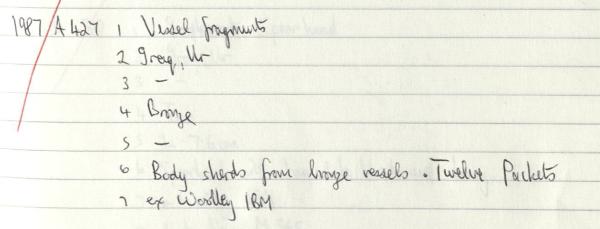 1987/A427 1 Vessel fragments
2 Iraq, Ur
3 —
4 Bronze
5 —
6 Body sherds from bronze vessels. Twelve Packets
7 ex Woolley IBM